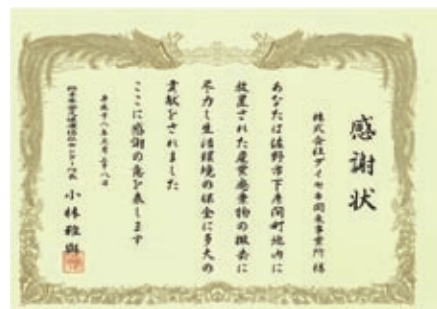 感謝状
株式会社ダイセキ関東事業所 様
あなたは佐野市下彦間町地内に
放置された産業廃棄物の撤去に
尽力し生活環境の保全に多大の
貢献をされました
ここに感謝の意を表します
平成十八年三月二十八日
小林雅與